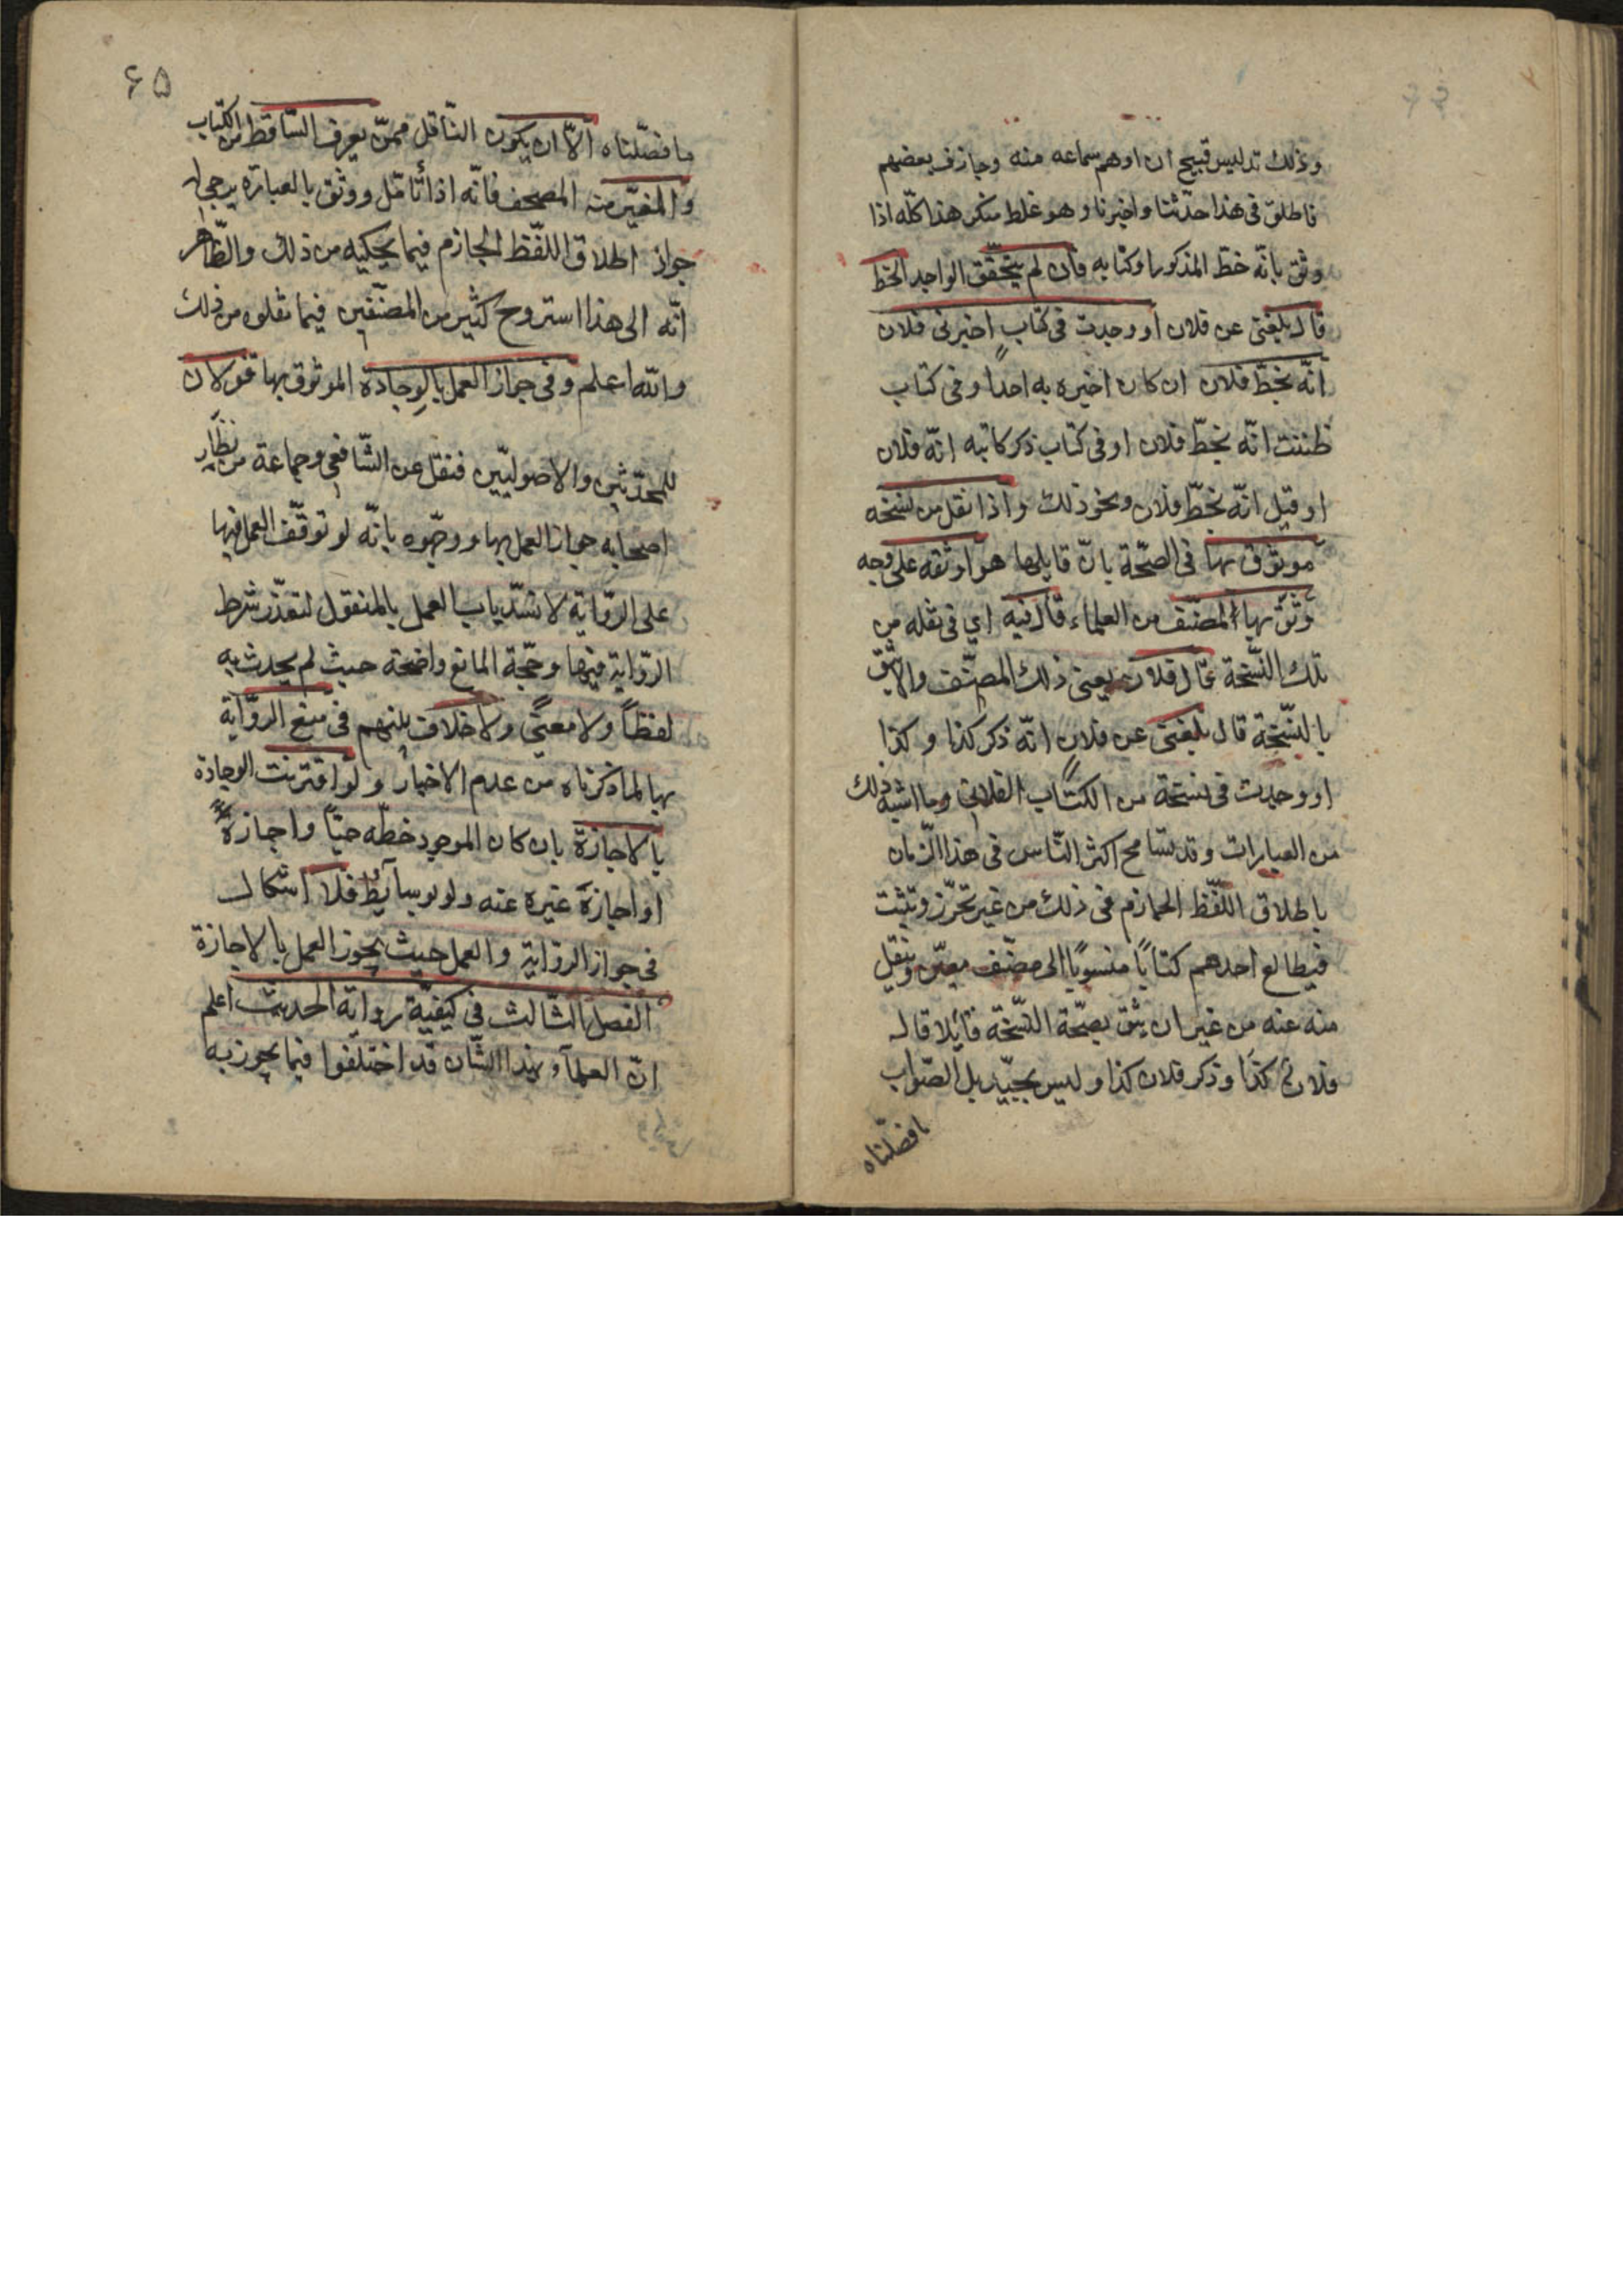 وذلك تدليس قبيح ان اوهم سماعه منه وجازف بعضهم
فاطلق فى هذا حدّثنا واخبرنا وهو غلط منكر هذا كلّه اذا
وثق بانّه خطّ المذكور او كتابه فان لم يتحقّق الواجد الخطّ
قال بلغنى عن فلان او وجدت فى كتاب اخبرنى فلان
انّه بخطّ فلان ان كان اخبره به احدا وفى كتاب
ظننت انّه بخطّ فلان او فى كتاب ذكر كاتبه انّه فلان
او قيل انّه بخطّ فلان ونحو ذلك واذا نقل من نسخة
موثوق بها فى الصحّة بان قابلها هو او ثقه على وجه
وثق بها المصنّف من العلماء قال فيه اى فى نقله من
تلك النّسخة قال فلان يعنى ذلك المصنّف والّا يثق
بالنّسخة قال بلغنى عن فلان انّه ذكر كذا وكذا
او وجدت فى نسخة من الكتاب الفلانى وما اشبه ذلك
من العبارات وقد تسامح اكثر النّاس فى هذا الزّمان
باطلاق اللّفظ الجازم فى ذلك من غير تحرّز وتثبت
فيطالع احدهم كتابًا منسوبًا الى مصنّف معيّن وينقل
منه عنه من غير ان يثق بصحّة النّسخة قايلا قال
فلان كذا وذكر فلان كذا وليس بجيّد بل الصّواب
ما فصّلناه
۶۵
ما فصّلناه الّا ان يكون النّاقل ممّن يعرف السّاقط من الكتاب
والمغيّر منه المصحف فانّه اذا تأمّل ووثق بالعبارة يرجى له
جواز اطلاق اللّفظ الجازم فيما يحكيه من ذلك والظّاهر
انّه الى هذا استروح كثير من المصنّفين فيما نقلوه من ذلك
والله اعلم وفى جواز العمل بالوجادة الموثوق بها قولان
للمحدّثين والاصوليّين فنقل عن الشّافعى وجماعة من نظّار
اصحابه جواز العمل بها ووجّهوه بانّه لو توقّف العمل فيها
على الرّواية لانسّد باب العمل بالمنقول لتعذّر شرط
الرّواية فيها وحجّة المانع واضحة حيث لم يحدث به
لفظًا ولا معنىً ولا خلاف بينهم فى منع الرّواية
بها لما ذكرناه من عدم الاخبار ولو اقترنت الوجادة
بالاجازة بان كان الموجود خطّه حيّا واجازة
او اجازة غيره عنه ولو بوسايط فلا اشكال
فى جواز الرّواية والعمل حيث يجوز العمل بالاجازة
الفصل الثّالث فى كيفيّة رواية الحديث اعلم
انّ العلمآء بهذا الشّان قد اختلفوا فيما يجوز به